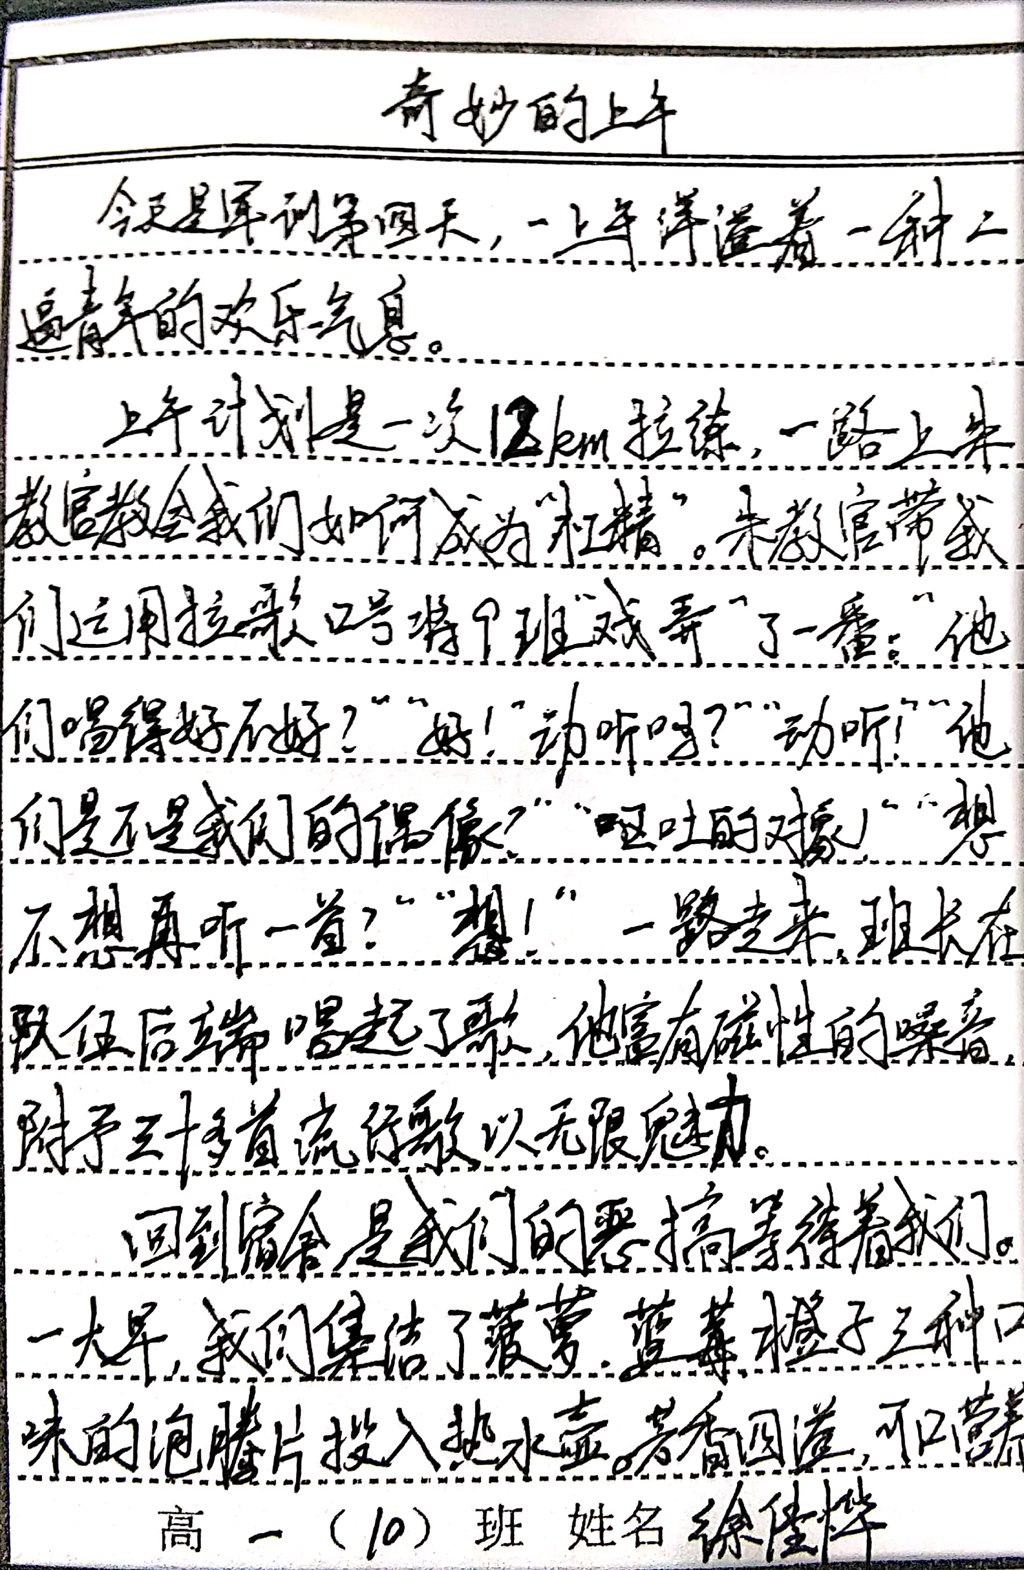 奇妙的上午
今天是军训第四天,一上午洋溢着一种二
逼青年的欢乐气息。
上午计划是一次12km拉练,一路上朱
教官教会我们如何成为"杠精"。朱教官带我
们运用拉歌口号将9班"戏弄"了一番:"他
们唱得好不好?""好!"动听吗?""动听!""他
们是不是我们的偶像?""呕吐的对象!""想
不想再听一首?""想!"一路走来,班长在
队伍后端唱起了歌,他富有磁性的嗓音,
附予三十多首流行歌以无限魅力。
回到宿舍是我们的恶搞等待着我们。
一大早,我们集结了菠萝.蓝莓.橙子三种口
味的泡腾片投入热水壶。芳香四溢,可口营养
高一(10)班 姓名 徐佳烨